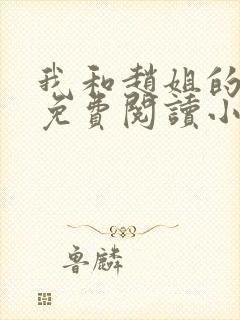 我和趙姐的
免費閱讀小
魯麟